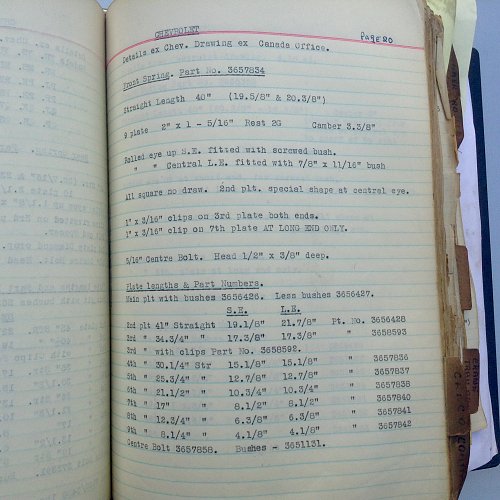 CHEVROLET
Page 20
Details ex Chev. Drawing ex Canada Office.
Front Spring. Part No. 3657834
Straight Length 40" (19.5/8" & 20.3/8")
9 plate 2" x 1 - 5/16" Rest 2G Camber 3.3/8"
Rolled eye up S.E. fitted with screwed bush.
" " Central L.E. fitted with 7/8" x 11/16" bush
All square no draw. 2nd plt. special shape at central eye.
1" x 3/16" clips on 3rd plate both ends.
1" x 3/16" clip on 7th plate AT LONG END ONLY.
5/16" Centre Bolt. Head 1/2" x 3/8" deep.
Plate lengths & Part Numbers.
Main plt with bushes 3656426. Less bushes 3656427.
S.E. L.E.
2nd plt 41" Straight 19.1/8" 21.7/8" Pt. No. 3656428
3rd " 34.3/4" " 17.3/8" 17.3/8" " 3658593
3rd " with clips Part No. 3658592.
4th " 30.1/4" Str 15.1/8" 15.1/8" " 3657836
5th " 25.3/4" " 12.7/8" 12.7/8" " 3657837
6th " 21.1/2" " 10.3/4" 10.3/4" " 3657838
7th " 17" " 8.1/2" 8.1/2" " 3657840
8th " 12.3/4" " 6.3/8" 6.3/8" " 3657841
9th " 8.1/4" " 4.1/8" 4.1/8" " 3657842
Centre Bolt 3657858. Bushes - 3651131.